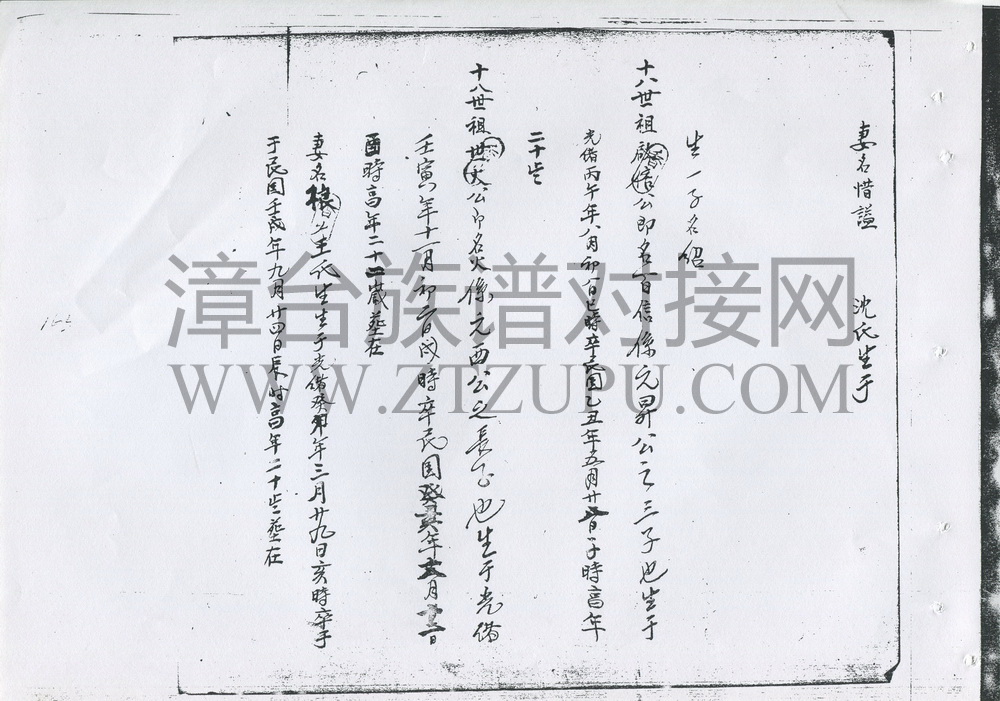 妻名惜謚 沈氏生于
生一子名紹
十八世祖啟信公即名百信係元昇公之三子也生于
光緒丙午年八月初一日巳時卒民国乙丑年五月廿日子時高年
二十歲
十八世祖世火公即名火係元西公之長子也生于光緒
壬寅年十一月初二日戌時卒民国癸亥年十二月十二日
酉時高年二十二歲葬在
妻名 王氏生生于光緒癸卯年三月廿九日亥時卒于
于民国壬戌年九月廿四日辰時高年二十歲葬在
漳台族谱对接网
WWW.ZTZUPU.COM